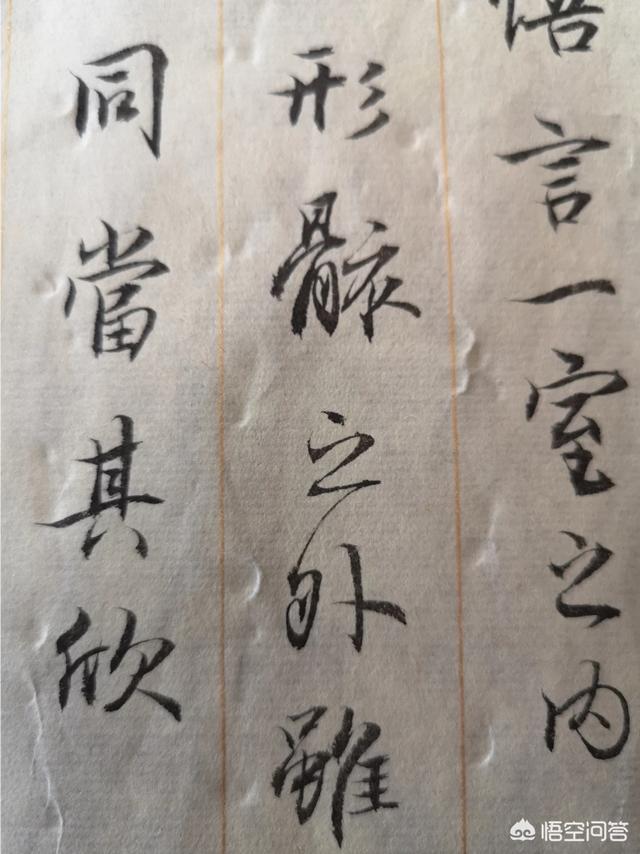 悟言一室之内
形骸之外雖
同當其欣
悟空问答